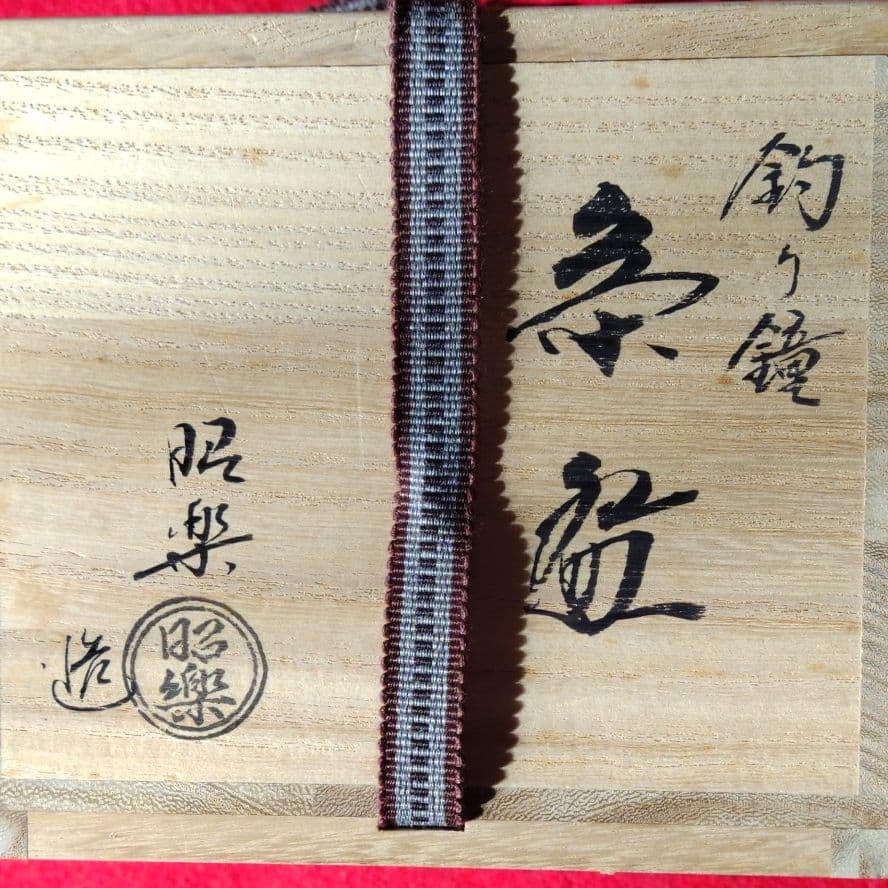 釣り鐘
茶盌
昭楽
造
昭樂